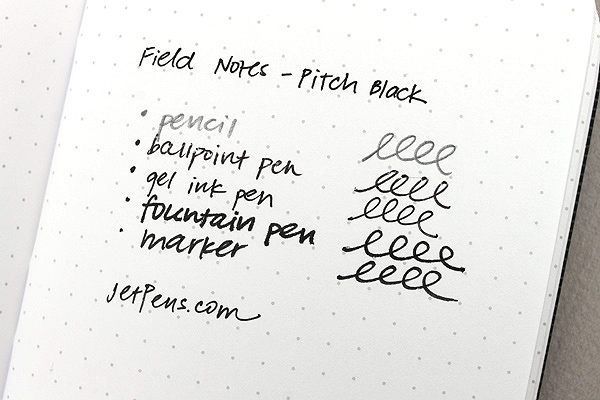 Field Notes - Pitch Black
• pencil
• ballpoint pen
• gel ink pen
• fountain pen
• marker
JetPens.com